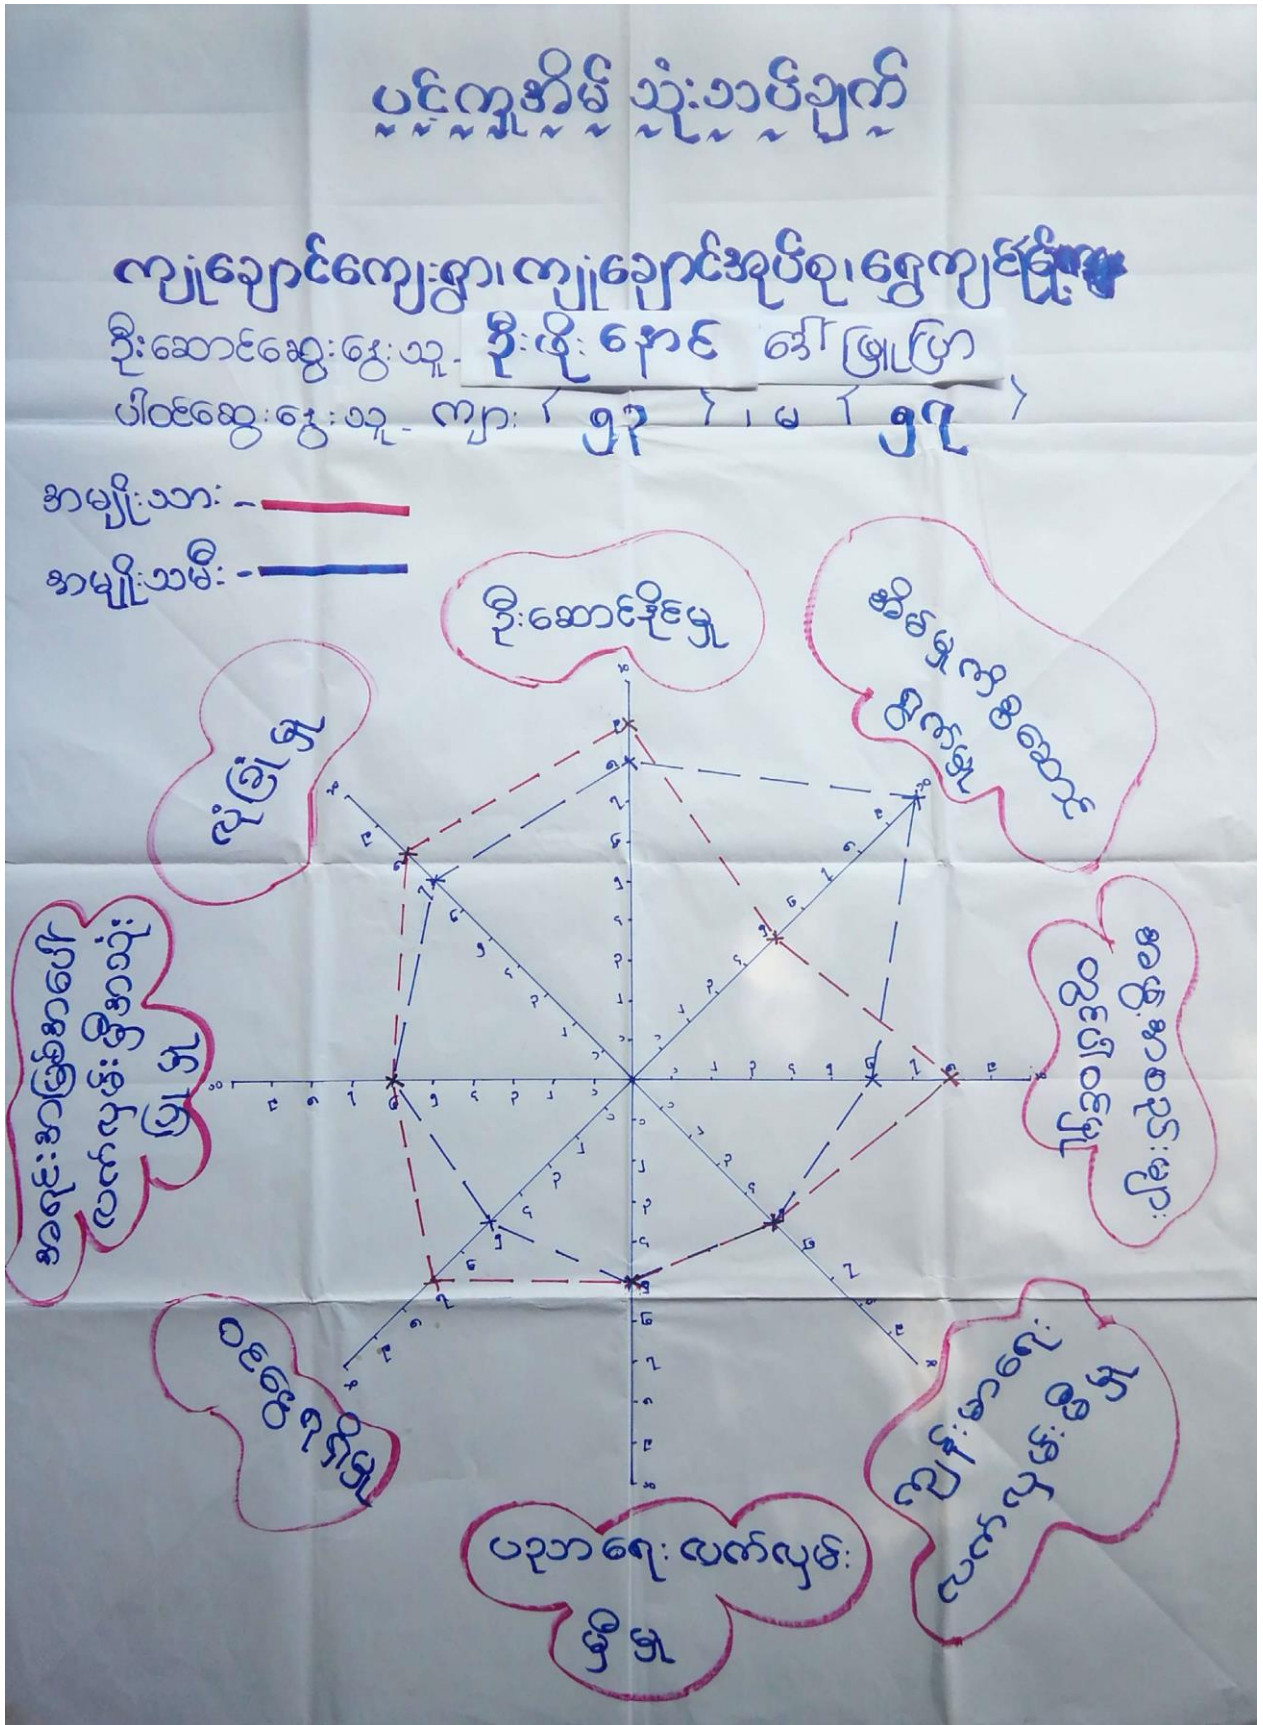 ပင့်ကူအိမ် သုံးသပ်ချက်
ကျုံချောင်ကျေးရွာ၊ ကျုံချောင်အုပ်စု၊ ရွှေကျင်မြို့
ဦးဆောင်ဆွေးနွေးသူ - ဦးဖိုးနောင် ဒေါ်ဖြူပြာ
ပါဝင်ဆွေးနွေးသူ - ကျား ( ၅၃ ) ၊ မ ( ၅၇ )
အမျိုးသား -
အမျိုးသမီး -
ဦးဆောင်နိုင်မှု
အိမ်မှုကိစ္စဆောင်
ရွက်မှု
အဖွဲ့အစည်းများ
တွင်ပါဝင်မှု
ကျန်းမာရေး
လက်လှမ်းမီမှု
ပညာရေး လက်လှမ်း
မှီမှု
ဝင်ငွေရရှိမှု
အရင်းအမြစ်အပေါ်
လက်လှမ်းမှီအသုံး
ပြုမှု
လုံခြုံမှု